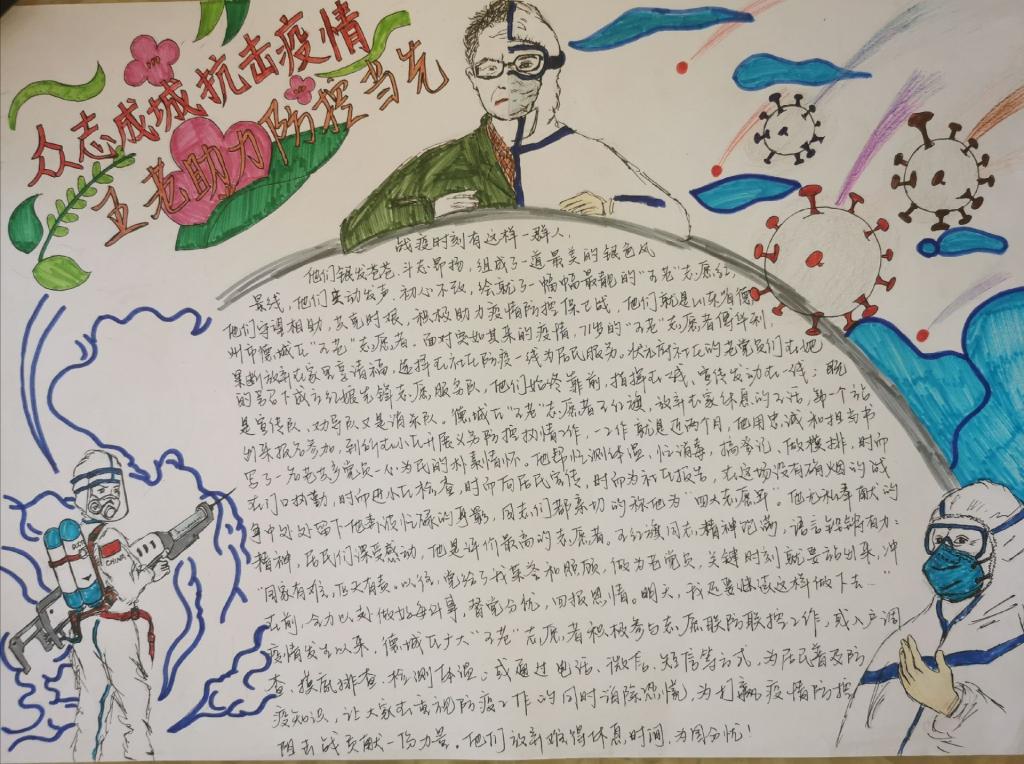 众志成城抗击疫情
五老助力防控当先
战疫时刻有这样一群人,
他们银发苍苍、斗志昂扬,组成了一道最美的银色风
景线,他们主动发声、初心不改,绘就了一幅幅最靓的“五老”志愿红,
他们守望相助,共克时艰,积极助力疫情防控保卫战,他们就是山东省德
州市德城区“五老”志愿者。面对突如其来的疫情,71岁的“五老”志愿者傅华利,
果断放弃在家里享清福,选择去社区防疫一线为居民服务。状元府社区的老党员们在她
的号召下成立红娘先锋志愿服务队,他们始终靠前,指挥在一线、宣传发动在一线;既
是宣传队、劝导队又是消杀队。德城区“五老”志愿者王红旗,放弃在家休息的生活,第一个站
出来报名参加,到所在小区开展义务防控执勤工作,一工作就是近两个月,他用忠诚和担当书
写了一名老共产党员一心为民的朴素情怀。他帮忙测体温、忙消毒、搞登记、做摸排,时而
在门口执勤,时而进小区检查,时而向居民宣传,时而为社区报告,在这场没有硝烟的战
争中处处留下他奔波忙碌的身影,同志们都亲切的称他为“四大志愿军”。他无私奉献的
精神,居民们深受感动,他是评价最高的志愿者。王红旗同志精神饱满,语言铿锵有力:
“国家有难,匹夫有责。以往,党给了我荣誉和照顾,做为老党员,关键时刻就要站出来,冲
在前,全力以赴做好每件事,替党分忧,回报恩情。明天,我还要继续这样做下去…”
疫情发生以来,德城区广大“五老”志愿者积极参与志愿联防联控工作,或入户调
查、摸底排查、检测体温;或通过电话、微信、短信等方式,为居民普及防
疫知识,让大家在重视防疫工作的同时消除恐慌,为打赢疫情防控
阻击战贡献一份力量。他们放弃难得休息时间,为国分忧!
CHINA